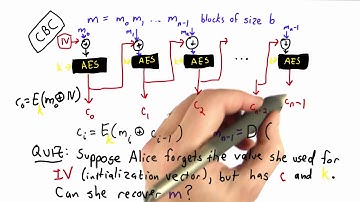 CBC
m = m₀ m₁ ... mₙ₋₁ blocks of size b
IV m₀ m₁ mₙ₋₁
k AES AES AES ... AES
c₀ c₁ c₂ cₙ₋₁
c₀ = E_k(m₀⊕IV) c_i = E_k(m_i ⊕ c_i₋₁) mₙ₋₁ = D (
QUIZ: Suppose Alice forgets the value she used for
IV (initialization vector), but has c and k.
Can she recover m?